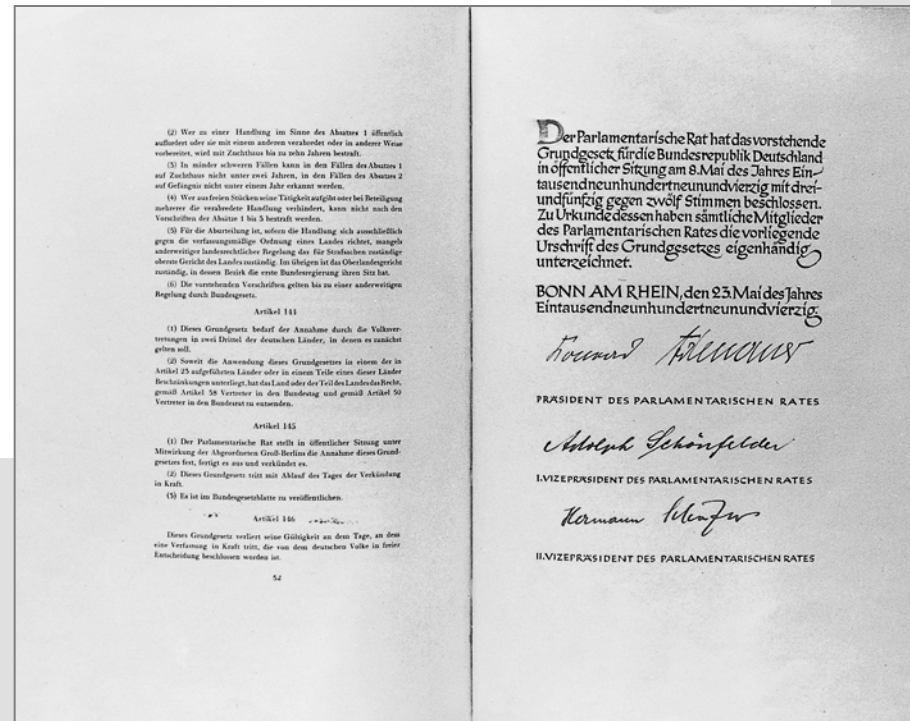 (2) Wer zu einer Handlung im Sinne des Absatzes 1 öffentlich
auffordert oder sie mit einem anderen verabredet oder in anderer Weise
vorbereitet, wird mit Zuchthaus bis zu zehn Jahren bestraft.
(3) In minder schweren Fällen kann in den Fällen des Absatzes 1
auf Zuchthaus nicht unter zwei Jahren, in den Fällen des Absatzes 2
auf Gefängnis nicht unter einem Jahr erkannt werden.
(4) Wer aus freien Stücken seine Tätigkeit aufgibt oder bei Beteiligung
mehrerer die verabredete Handlung verhindert, kann nicht nach den
Vorschriften der Absätze 1 bis 3 bestraft werden.
(5) Für die Aburteilung ist, sofern die Handlung sich ausschließlich
gegen die verfassungsmäßige Ordnung eines Landes richtet, mangels
anderweitiger landesrechtlicher Regelung das für Strafsachen zuständige
oberste Gericht des Landes zuständig. Im übrigen ist das Oberlandesgericht
zuständig, in dessen Bezirk die erste Bundesregierung ihren Sitz hat.
(6) Die vorstehenden Vorschriften gelten bis zu einer anderweitigen
Regelung durch Bundesgesetz.
Artikel 144
(1) Dieses Grundgesetz bedarf der Annahme durch die Volksver-
tretungen in zwei Drittel der deutschen Länder, in denen es zunächst
gelten soll.
(2) Soweit die Anwendung dieses Grundgesetzes in einem der in
Artikel 23 aufgeführten Länder oder in einem Teile eines dieser Länder
Beschränkungen unterliegt, hat das Land oder der Teil des Landes das Recht,
gemäß Artikel 38 Vertreter in den Bundestag und gemäß Artikel 50
Vertreter in den Bundesrat zu entsenden.
Artikel 145
(1) Der Parlamentarische Rat stellt in öffentlicher Sitzung unter
Mitwirkung der Abgeordneten Groß-Berlins die Annahme dieses Grund-
gesetzes fest, fertigt es aus und verkündet es.
(2) Dieses Grundgesetz tritt mit Ablauf des Tages der Verkündung
in Kraft.
(3) Es ist im Bundesgesetzblatte zu veröffentlichen.
Artikel 146
Dieses Grundgesetz verliert seine Gültigkeit an dem Tage, an dem
eine Verfassung in Kraft tritt, die von dem deutschen Volke in freier
Entscheidung beschlossen worden ist.
52
Der Parlamentarische Rat hat das vorstehende
Grundgesetz für die Bundesrepublik Deutschland
in öffentlicher Sitzung am 8. Mai des Jahres Ein-
tausendneunhundertneunundvierzig mit drei-
undfünfzig gegen zwölf Stimmen beschlossen.
Zu Urkunde dessen haben sämtliche Mitglieder
des Parlamentarischen Rates die vorliegende
Urschrift des Grundgesetzes eigenhändig
unterzeichnet.
BONN AM RHEIN, den 23. Mai des Jahres
Eintausendneunhundertneunundvierzig.
Konrad Adenauer
PRÄSIDENT DES PARLAMENTARISCHEN RATES
Adolph Schönfelder
I. VIZEPRÄSIDENT DES PARLAMENTARISCHEN RATES
Hermann Schäfer
II. VIZEPRÄSIDENT DES PARLAMENTARISCHEN RATES